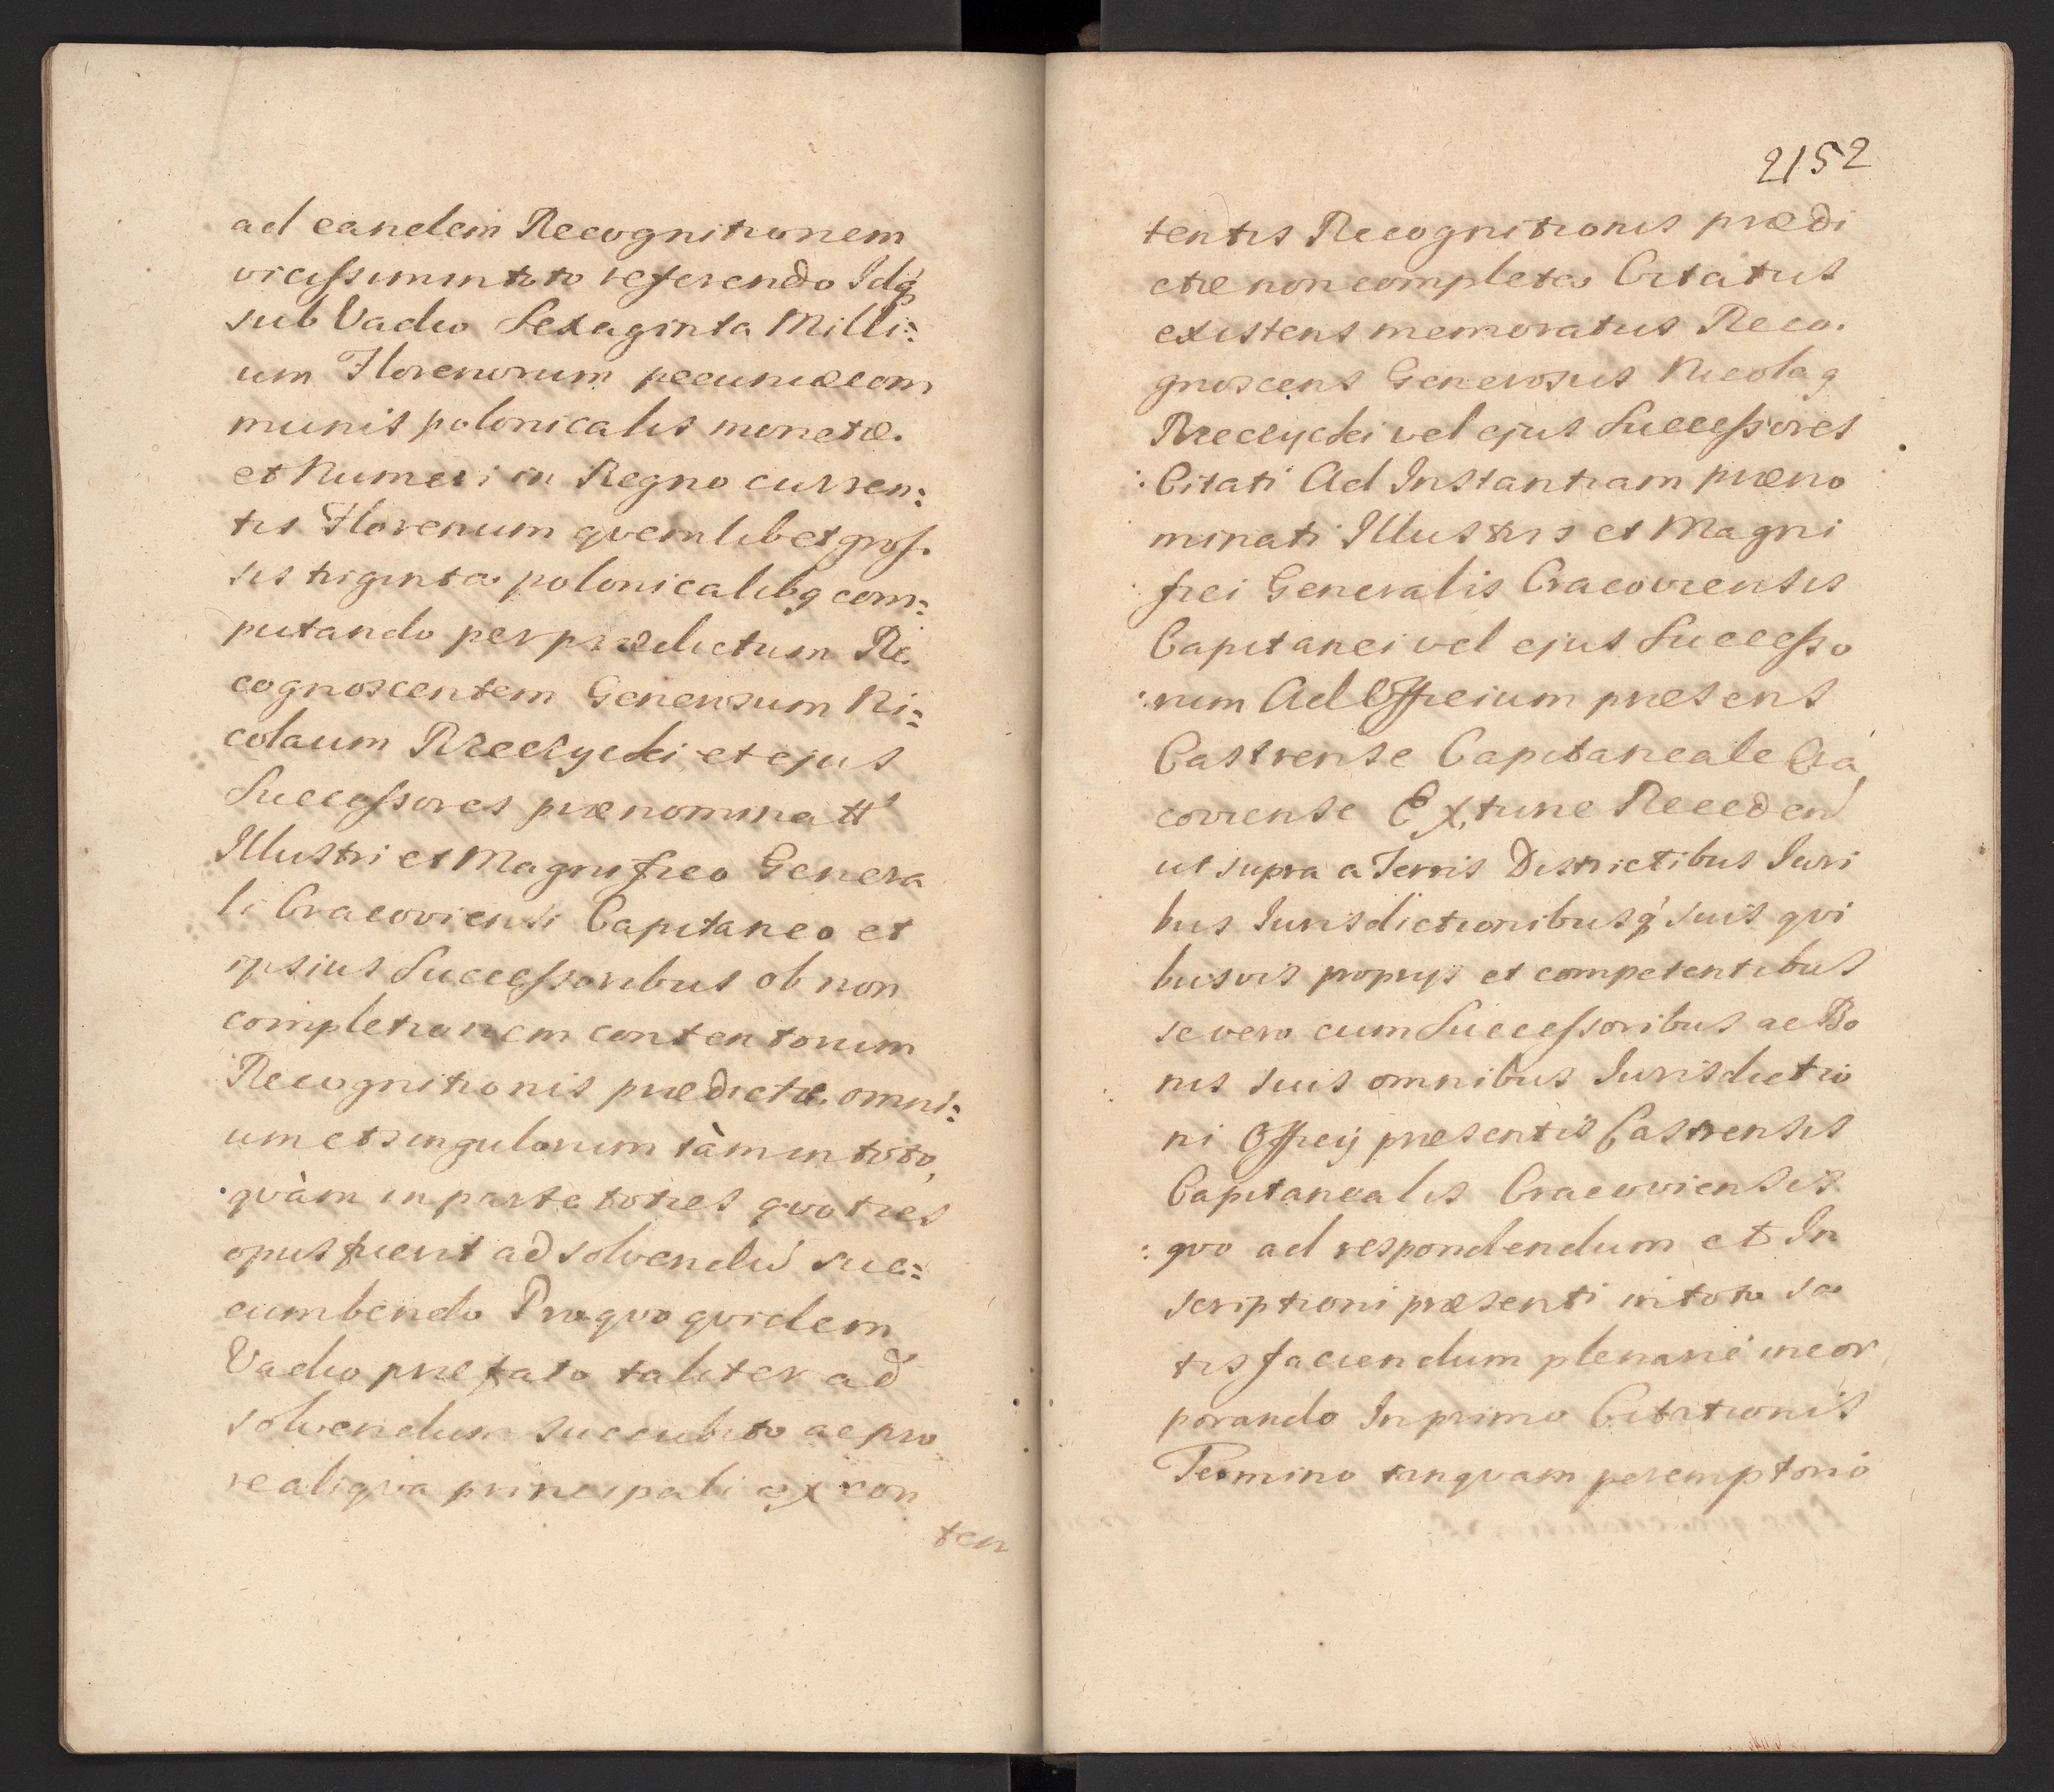 ad eandem Recognitionem
vicissim in toto referendo Idq́
sub Vadio Sexaginta Milli:
um Florenorum pecuniæ com
munis polonicalis monetæ.
et Numeri in Regno curren:
tis Florenum qvemlibet gros.
sis triginta polonicalibq com:
putando per prædictum Re
cognoscentem Generosum Ni:
colaum Rzeczycki et ejus
Successores prænominatt
Illustri et Magnifico Genera
li Cracoviensi Capitaneo et
ipsius Successoribus ob non
completionem contentorum
Recognitionis prædictæ omni:
um et singulorum tàm in toto,
qvàm in parte toties qvoties
opus fuerit ad solvendũ suc:
cumbendo Pro qvo qvidem
Vadio præfato taliter ad
solvendum succubito ac pro
re aliqva principali ex con
ten
2152
tentis Recognitionis prædi
ctæ non completa Citatus
existens memoratus Reco.
gnoscens Generosus Nicolaq
Rzeczycki vel ejus Successores
Citati Ad Instantiam præno
minati Illustris et Magni
fici Generalis Cracoviensis
Capitanei vel ejus Successo
rum Ad Officium præsens
Castrense Capitaneale Cra
coviense Ex, tunc Receden
ut supra a Terris Districtibus Juri
bus Jurisdictionibusq́ suis qvi
busvis proprijs et competentibus
se vero cum Successoribus ac Bo
nis suis omnibus Jurisdictio
ni Officij præsentis Castrensis
Capitanealis Cracoviensis
qvo ad respondendum et In
scriptioni præsenti in toto sa
tisfaciendum plenarie incor
porando In primo Citationis
Termino tanqvam peremptorio